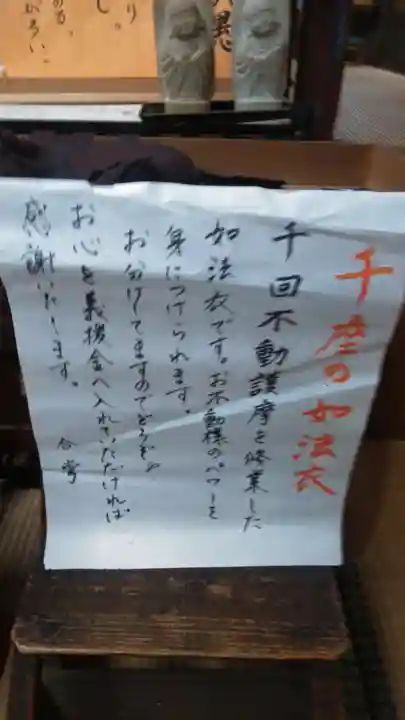 千座の如法衣
千回不動護摩を修業した
如法衣です。お不動様のパワーを
身につけられます。
お分けしてますのでどうぞ
お心を義援金へ入れさいただければ
感謝いたします。
合掌